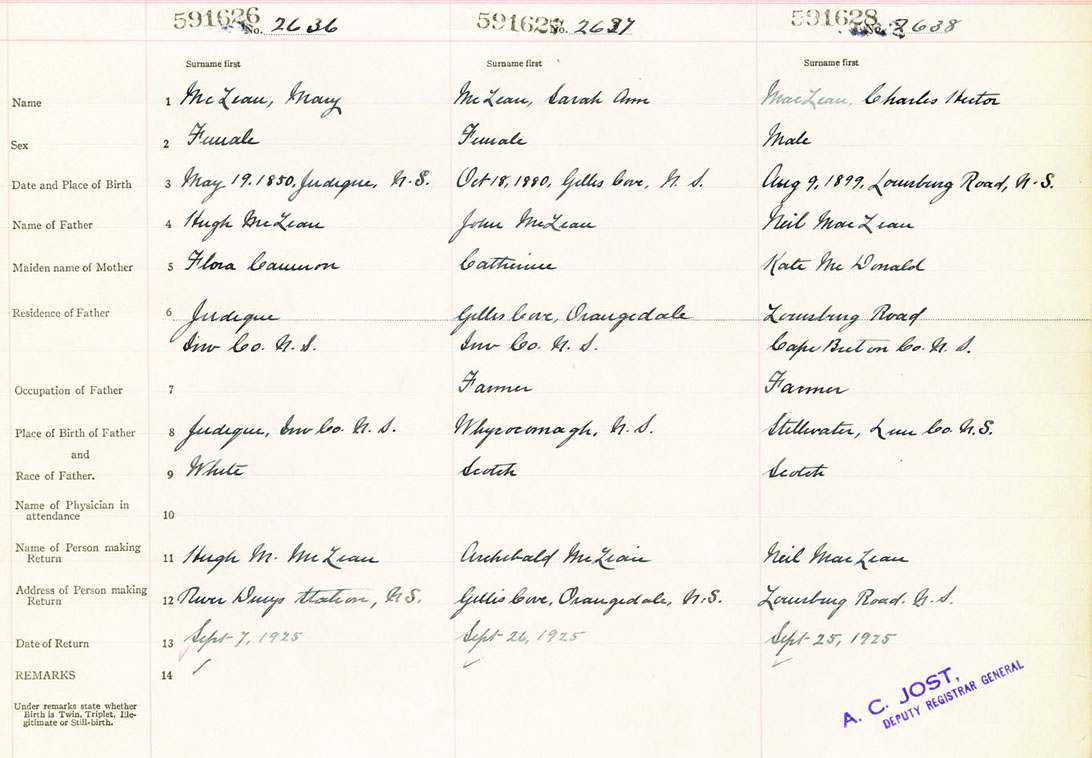 591626 No. 2636 591627 No. 2637 591628 No. 2638
Surname first Surname first Surname first
Name 1 McLean, Mary McLean, Sarah Ann MacLean, Charles Hector
Sex 2 Female Female Male
Date and Place of Birth 3 May 19, 1850, Judique, N.S. Oct 18, 1880, Gillis Cove, N.S. Aug 9, 1899, Louisburg Road, N.S.
Name of Father 4 Hugh McLean John McLean Neil MacLean
Maiden name of Mother 5 Flora Cameron Catherine Kate McDonald
Residence of Father 6 Judique Gillis Cove, Orangedale Louisburg Road
Inv Co. N.S. Inv Co. N.S. Cape Breton Co. N.S.
Occupation of Father 7 Farmer Farmer
Place of Birth of Father 8 Judique, Inv Co. N.S. Whycocomagh, N.S. Stillwater, Co. N.S.
and
Race of Father. 9 White Scotch Scotch
Name of Physician in
attendance 10
Name of Person making
Return 11 Hugh M. McLean Archibald McLean Neil MacLean
Address of Person making
Return 12 River Denys Station, N.S. Gillis Cove, Orangedale, N.S. Louisburg Road. N.S.
Date of Return 13 Sept 7, 1925 Sept 26, 1925 Sept 25, 1925
REMARKS 14
Under remarks state whether
Birth is Twin, Triplet, Ille-
gitimate or Still-birth.
A. C. JOST,
DEPUTY REGISTRAR GENERAL